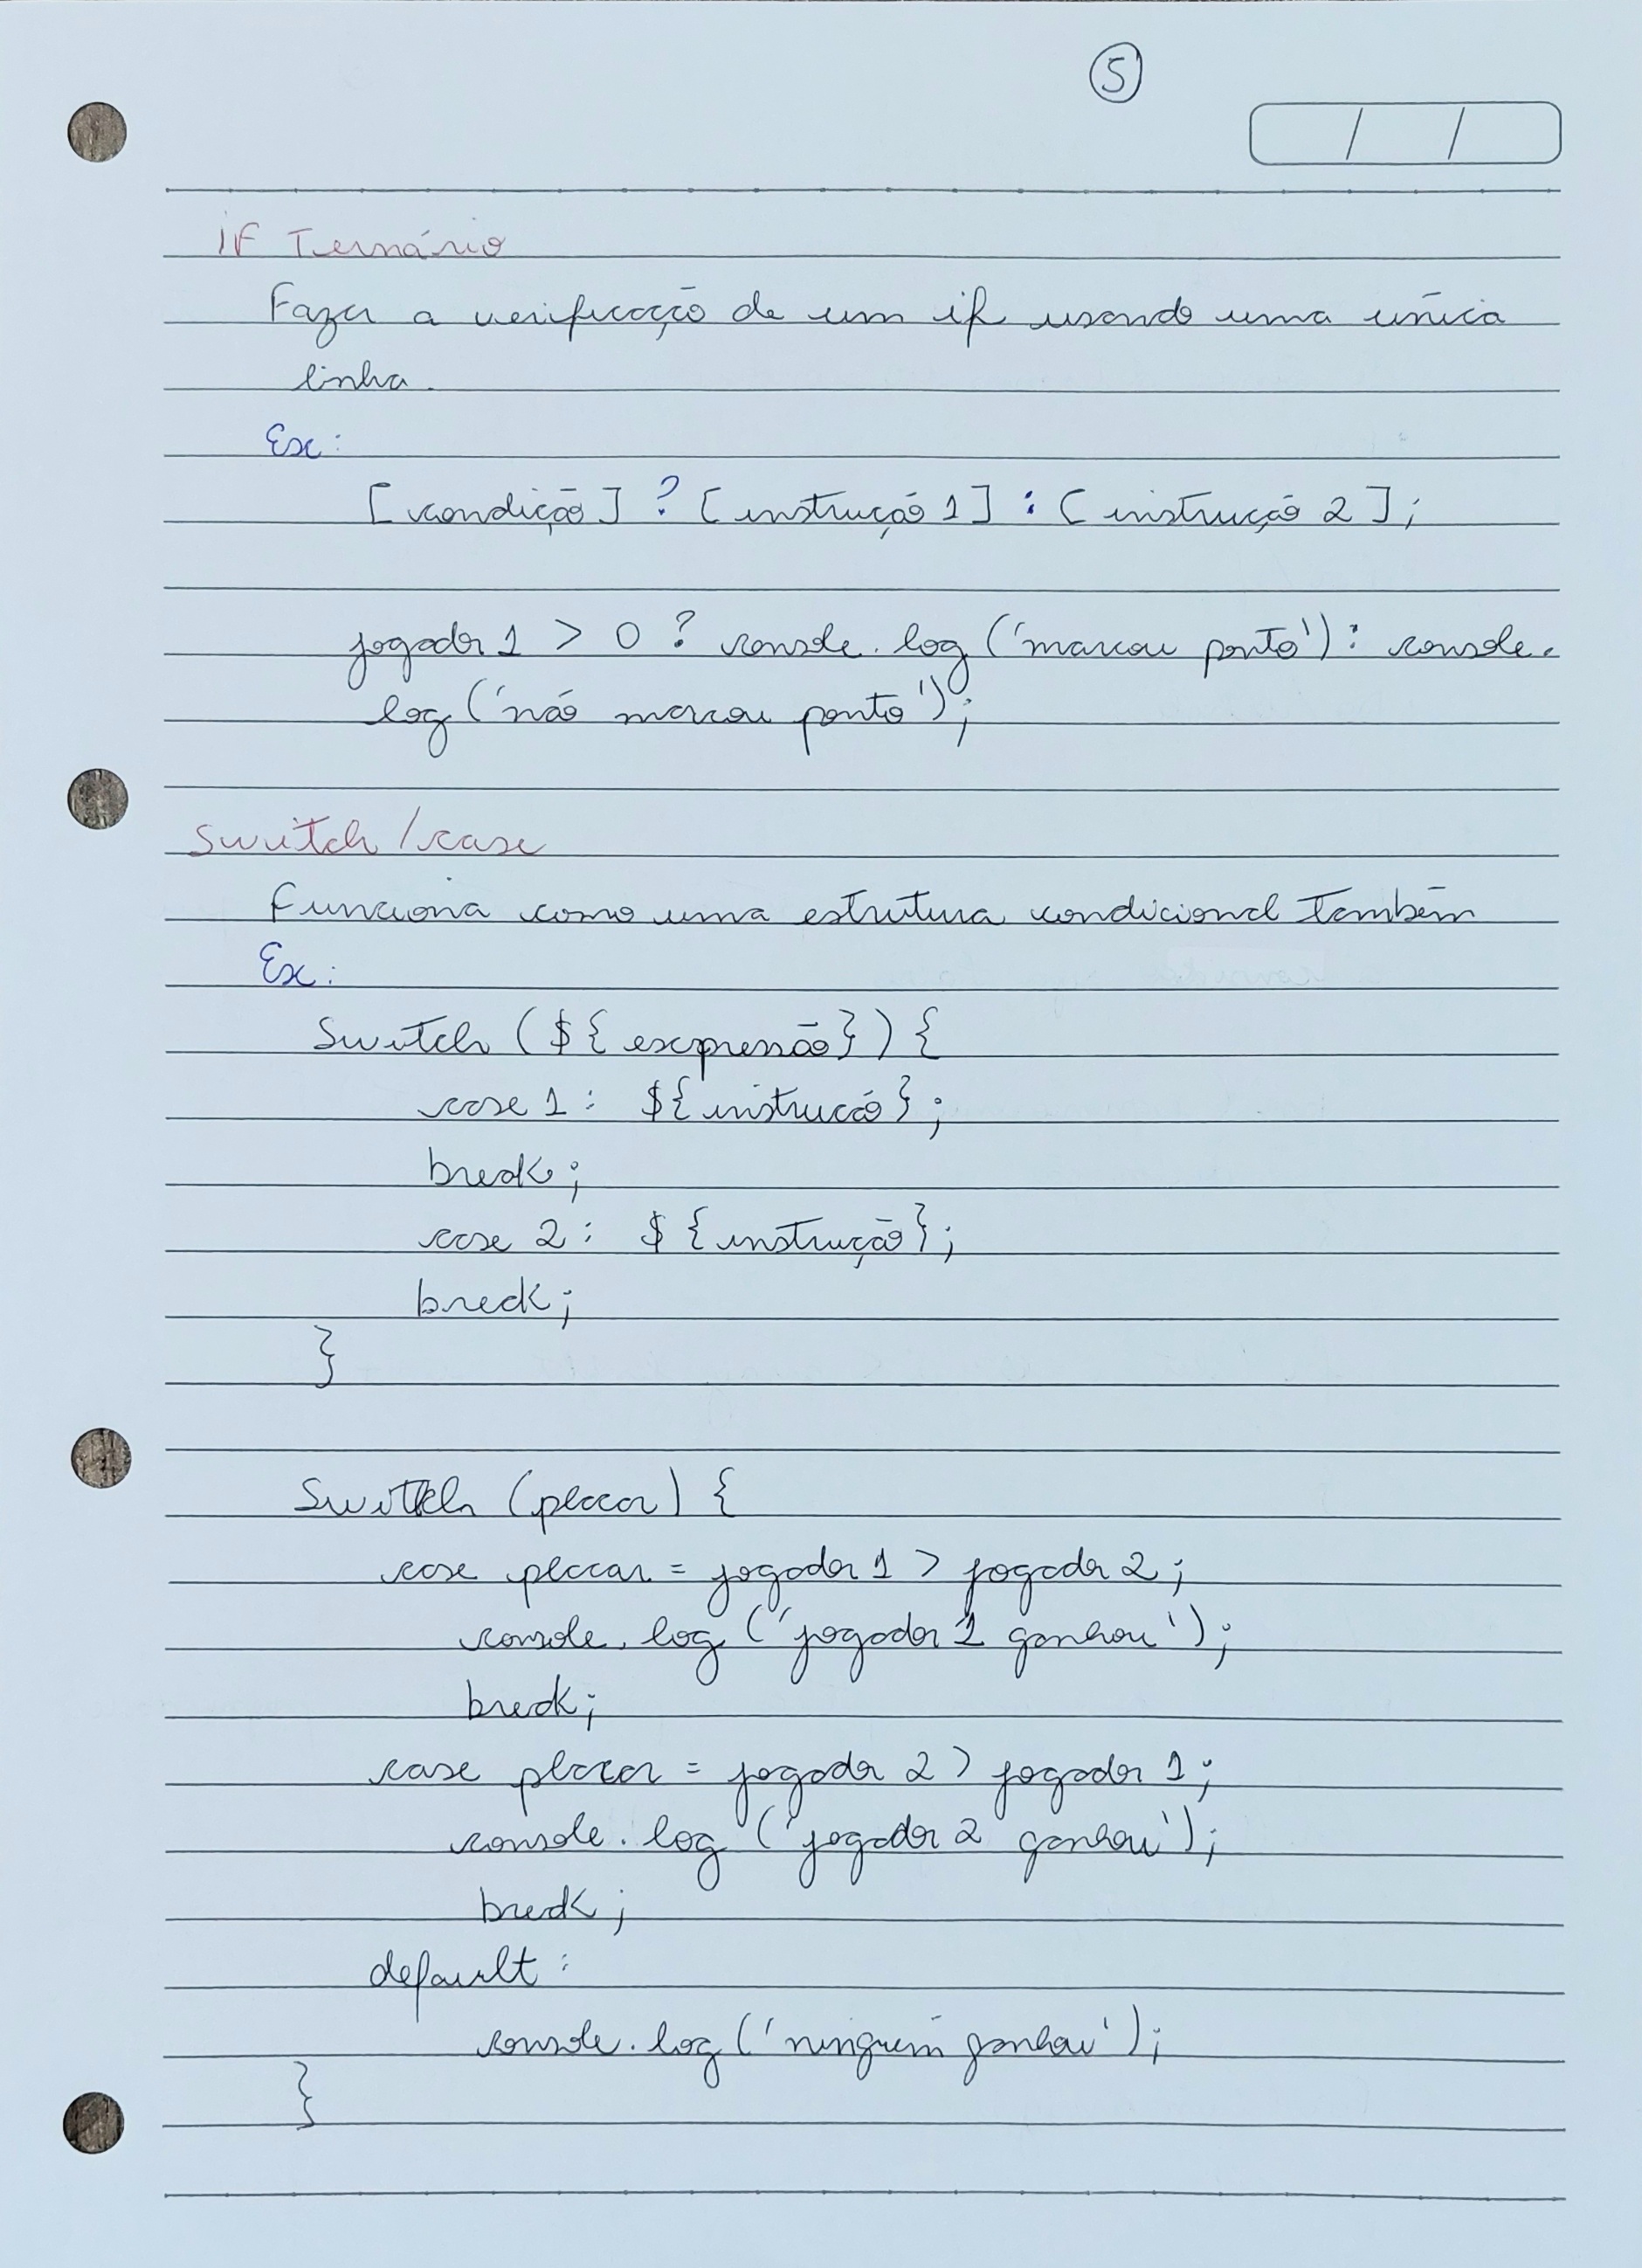 5
/ /
IF Ternário
Fazer a verificação de um if usando uma única
linha.
Ex:
[condição] ? [instrução 1] : [instrução 2];
jogador1 > 0 ? console.log('marcou ponto') : console.
log('não marcou ponto');
Switch/case
Funciona como uma estrutura condicional também
Ex:
Switch (${expressão}) {
case 1: ${instrucão};
break;
case 2: ${instrução};
break;
}
Switch (placar) {
case placar = jogador1 > jogador2;
console.log('jogador 1 ganhou');
break;
case placar = jogador2 > jogador1;
console.log('jogador 2 ganhou');
break;
default:
console.log('ninguém ganhou');
}